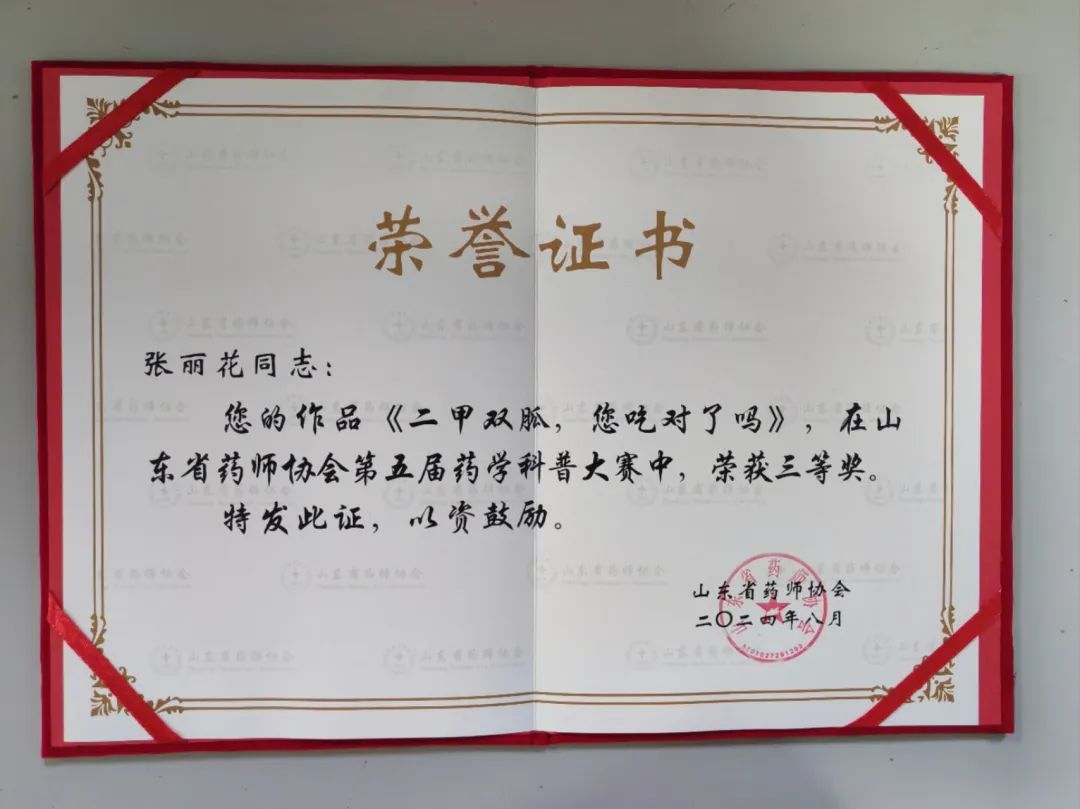 荣誉证书
张丽花同志：
您的作品《二甲双胍，您吃对了吗》，在山
东省药师协会第五届药学科普大赛中，荣获三等奖。
特发此证，以资鼓励。
山东省药师协会
二〇二四年八月
山东省药师协会